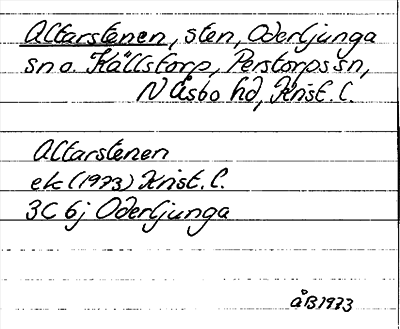 Altarstenen, sten, Oderljunga
sn o. Källstorp, Perstorps sn,
N Åsbo hd, Krist. l.
Altarstenen
ek (1973) Krist. l.
3C 6j Oderljunga
ÅB1973